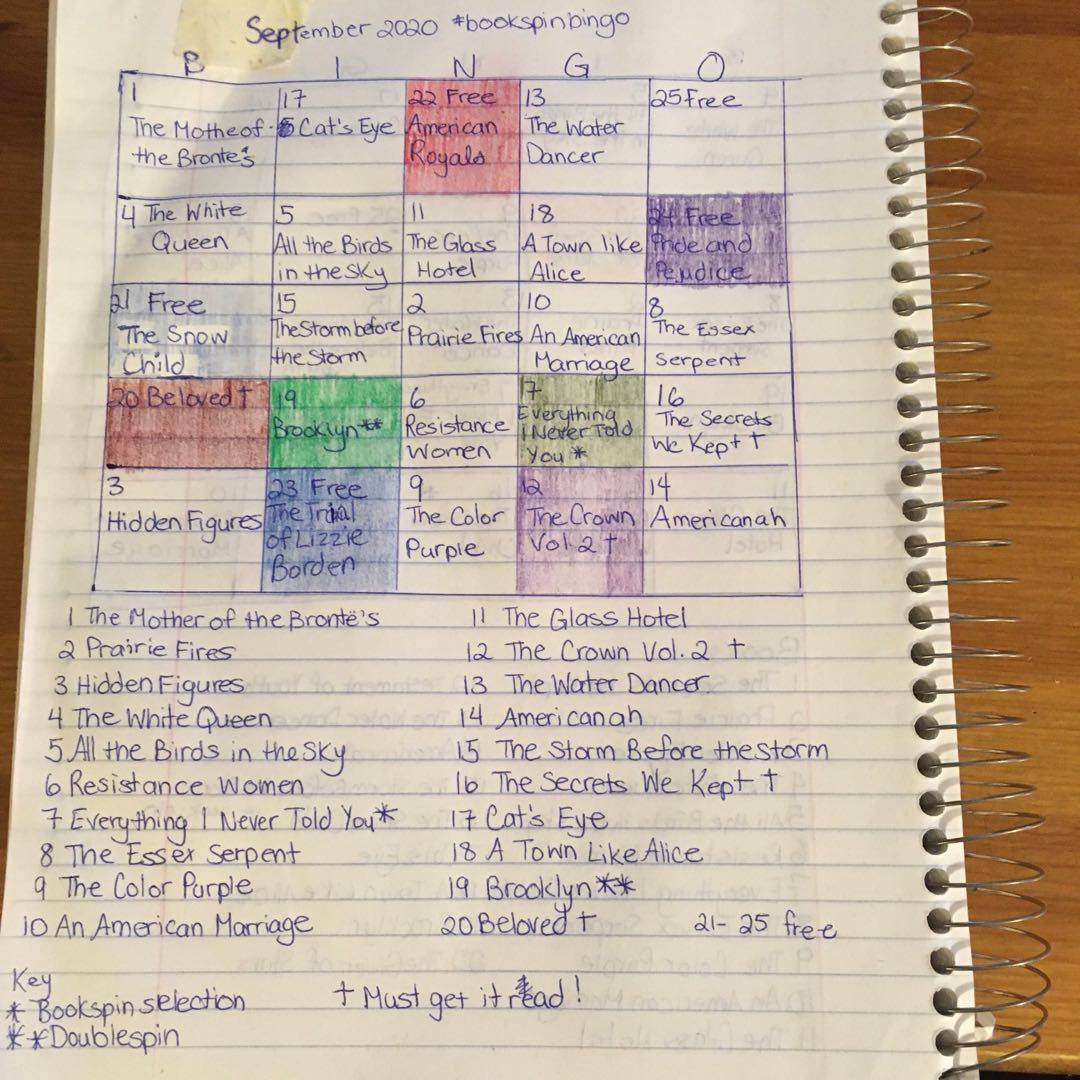 September 2020 #bookspinbingo
B I N G O
1 17 22 Free 13 25 Free
The Motheof Cat's Eye American The Water
the Brontë's Royals Dancer
4 The White 5 11 18 24 Free
Queen All the Birds The Glass A Town like Pride and
in the Sky Hotel Alice Pejudice
21 Free 15 2 10 8
The Snow The Storm before Prairie Fires An American The Essex
Child the Storm Marriage Serpent
20 Beloved † 19 6 7 16
Brooklyn** Resistance Everything The Secrets
Women I Never Told We Kept †
You *
3 23 Free 9 12 14
Hidden Figures The Trial The Color The Crown Americanah
of Lizzie Purple Vol. 2 †
Borden
1 The Mother of the Brontë's 11 The Glass Hotel
2 Prairie Fires 12 The Crown Vol. 2 †
3 Hidden Figures 13 The Water Dancer
4 The White Queen 14 Americanah
5 All the Birds in the Sky 15 The Storm Before the Storm
6 Resistance Women 16 The Secrets We Kept †
7 Everything I Never Told You* 17 Cat's Eye
8 The Essex Serpent 18 A Town Like Alice
9 The Color Purple 19 Brooklyn**
10 An American Marriage 20 Beloved † 21-25 free
Key
* Bookspin selection † Must get it read!
** Doublespin